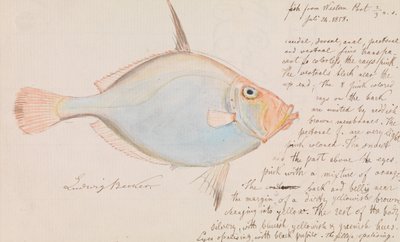 fish from Western Port 2/3 n. s.
Feb. 26. 1858.
caudal, dorsal, anal, pectoral
and ventral fins transpa-
rent & colorless the rays pink.
The ventrals black near the
up end, the & pink colored
rays on the back
are united by reddish
brown membranes. The
pectoral f. are very light
pink colored. The
and the part above the eyes
pink with a mixture of orange.
The back and belly near
the margin of a dirty yellowish brown,
changing into yellow. The rest of the body
silvery, with blueish, yellowish & greenish hues.
Eyes opalising with black pupils. The gillcps opalising.
Ludwig Becker